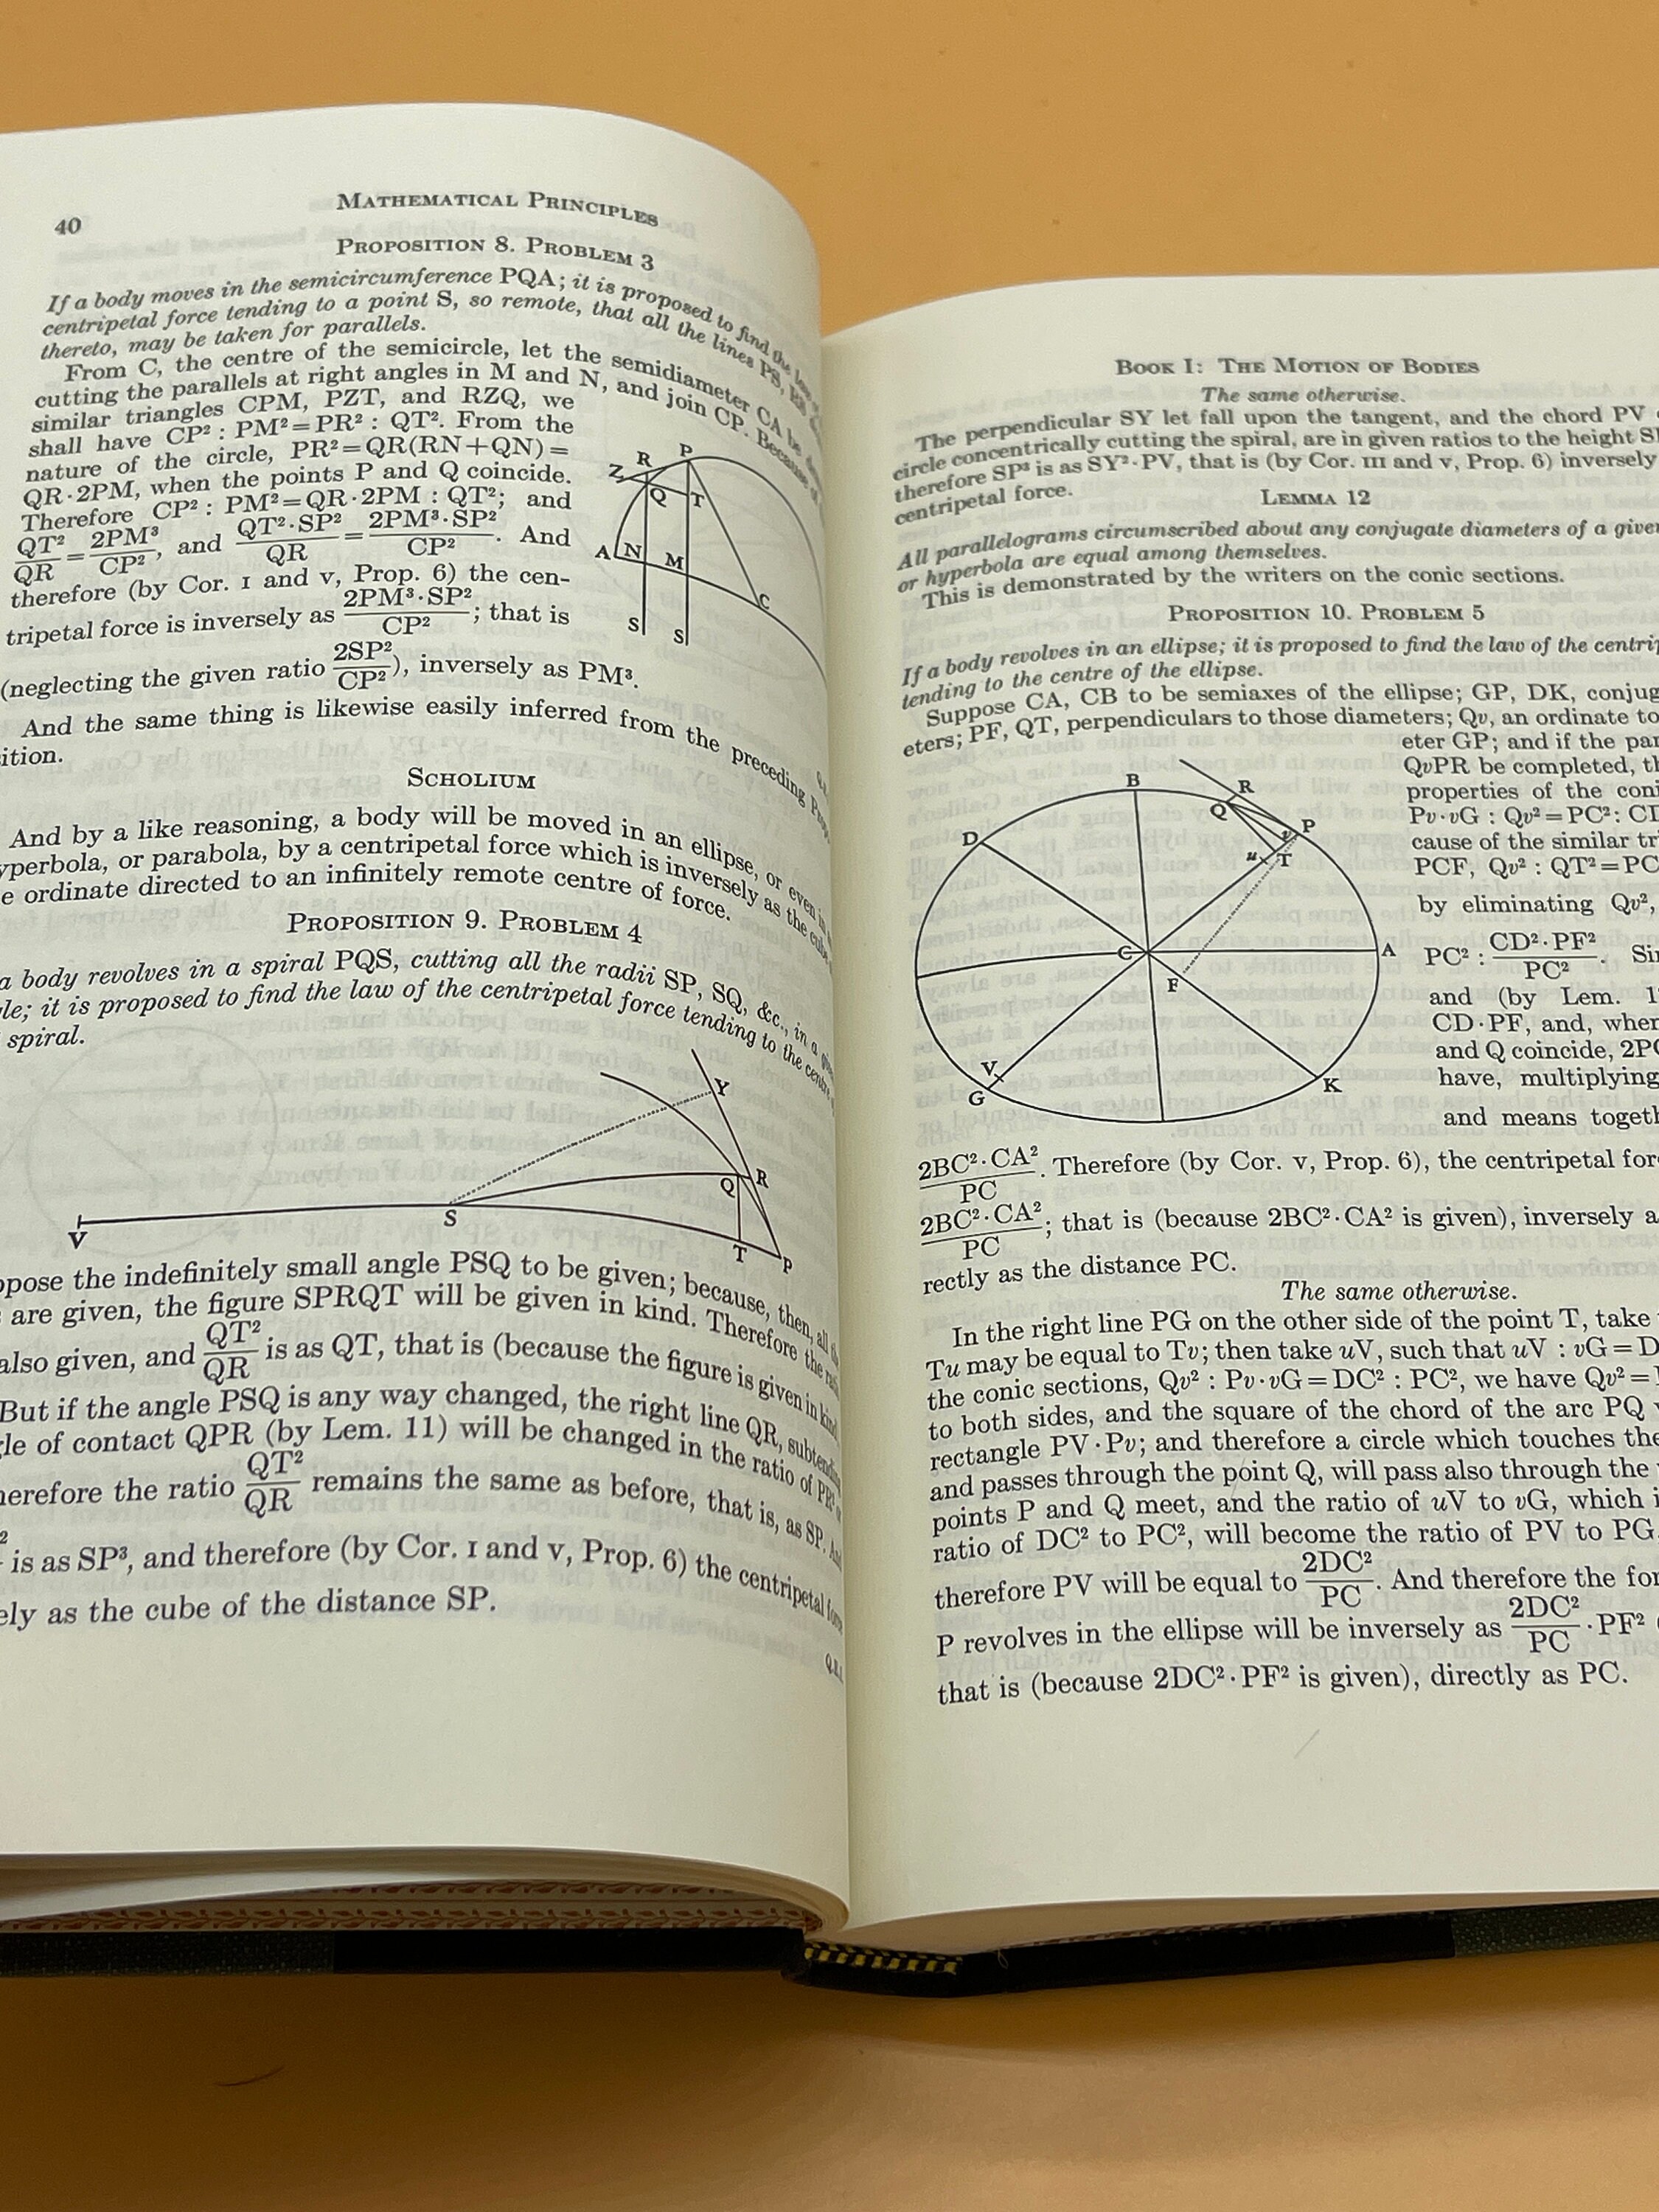 40
MATHEMATICAL PRINCIPLES
PROPOSITION 8. PROBLEM 3
If a body moves in the semicircumference PQA; it is proposed to find the law of
centripetal force tending to a point S, so remote, that all the lines PS, RS
thereto, may be taken for parallels.
From C, the centre of the semicircle, let the semidiameter CA be
cutting the parallels at right angles in M and N, and join CP. Because of
similar triangles CPM, PZT, and RZQ, we
shall have CP² : PM²=PR² : QT². From the
nature of the circle, PR²=QR(RN+QN)=
QR·2PM, when the points P and Q coincide.
Therefore CP² : PM²=QR·2PM : QT²; and
QT²/QR = 2PM³/CP², and QT²·SP²/QR = 2PM³·SP²/CP². And
therefore (by Cor. I and V, Prop. 6) the cen-
tripetal force is inversely as 2PM³·SP²/CP²; that is
(neglecting the given ratio 2SP²/CP²), inversely as PM³.
And the same thing is likewise easily inferred from the preceding
ition.
R P
Z
Q T
A N M
C
S S
SCHOLIUM
And by a like reasoning, a body will be moved in an ellipse, or even in
yperbola, or parabola, by a centripetal force which is inversely as the cube
e ordinate directed to an infinitely remote centre of force.
PROPOSITION 9. PROBLEM 4
a body revolves in a spiral PQS, cutting all the radii SP, SQ, &c., in a
le; it is proposed to find the law of the centripetal force tending to the centre
spiral.
Y
R
Q
S
V
T
P
ppose the indefinitely small angle PSQ to be given; because, then, all
are given, the figure SPRQT will be given in kind. Therefore the
also given, and QT²/QR is as QT, that is (because the figure is given in kind,
But if the angle PSQ is any way changed, the right line QR, subtending
gle of contact QPR (by Lem. 11) will be changed in the ratio of PR²
herefore the ratio QT²/QR remains the same as before, that is, as SP. And
² is as SP³, and therefore (by Cor. I and V, Prop. 6) the centripetal force
ely as the cube of the distance SP.
Q.E.I.
BOOK I: THE MOTION OF BODIES
The same otherwise.
The perpendicular SY let fall upon the tangent, and the chord PV
circle concentrically cutting the spiral, are in given ratios to the height
therefore SP³ is as SY²·PV, that is (by Cor. III and V, Prop. 6) inversely
centripetal force.
LEMMA 12
All parallelograms circumscribed about any conjugate diameters of a given
or hyperbola are equal among themselves.
This is demonstrated by the writers on the conic sections.
PROPOSITION 10. PROBLEM 5
If a body revolves in an ellipse; it is proposed to find the law of the centrip
tending to the centre of the ellipse.
Suppose CA, CB to be semiaxes of the ellipse; GP, DK, conjug
eters; PF, QT, perpendiculars to those diameters; Qv, an ordinate to
eter GP; and if the par
QvPR be completed, th
properties of the coni
Pv·vG : Qv²=PC² : CD
cause of the similar tri
PCF, Qv² : QT²=PC
by eliminating Qv²,
PC² : CD²·PF²/PC². Sin
and (by Lem. 1
CD·PF, and, when
and Q coincide, 2PC
have, multiplying
and means togeth
B
R
Q
P
v
D
u T
C
A
F
V
G
K
2BC²·CA²/PC. Therefore (by Cor. V, Prop. 6), the centripetal for
2BC²·CA²/PC; that is (because 2BC²·CA² is given), inversely a
rectly as the distance PC.
The same otherwise.
In the right line PG on the other side of the point T, take
Tu may be equal to Tv; then take uV, such that uV : vG=D
the conic sections, Qv² : Pv·vG=DC² : PC², we have Qv²=
to both sides, and the square of the chord of the arc PQ
rectangle PV·Pv; and therefore a circle which touches the
and passes through the point Q, will pass also through the
points P and Q meet, and the ratio of uV to vG, which i
ratio of DC² to PC², will become the ratio of PV to PG
therefore PV will be equal to 2DC²/PC. And therefore the for
P revolves in the ellipse will be inversely as 2DC²/PC·PF²
that is (because 2DC²·PF² is given), directly as PC.